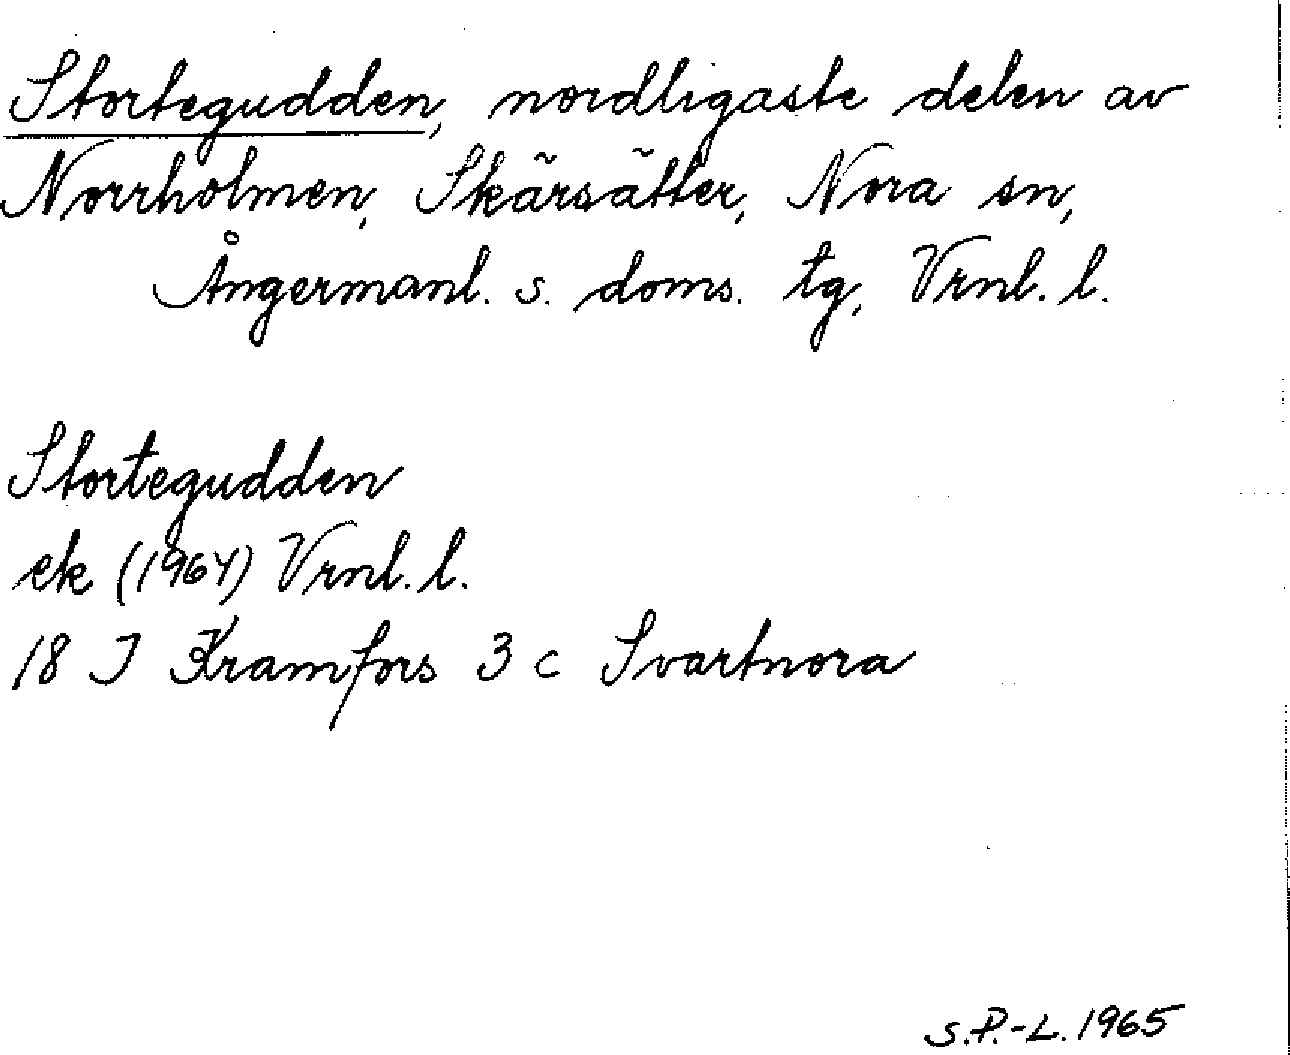 Stortegudden, nordligaste delen av
Norrholmen, Skärsätter, Nora sn,
Ångermanl. s. doms. tg, Vrnl. l.
Stortegudden
ek (1964) Vrnl. l.
18 J Kramfors 3 c Svartnora
S.P.-L. 1965